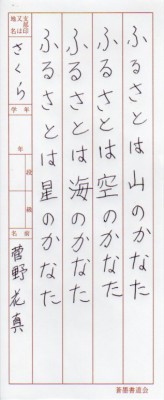 ふるさとは山のかなた
ふるさとは空のかなた
ふるさとは海のかなた
ふるさとは星のかなた
支部印又は地名
さくら
学年
年
段級
名前
菅野花真
蒼墨書道会